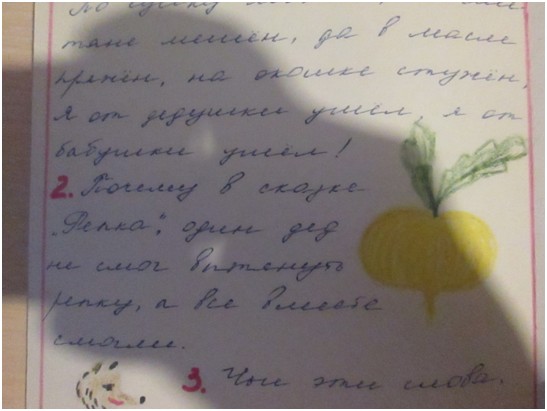 тане мешен, да в масле
пряжен, на окошке стужён,
Я от дедушки ушёл, я от
бабушки ушёл!
2. Почему в сказке
„Репка“, один дед
не смог вытянуть
репку, а все вместе
смогли.
3. Чьи это слова.